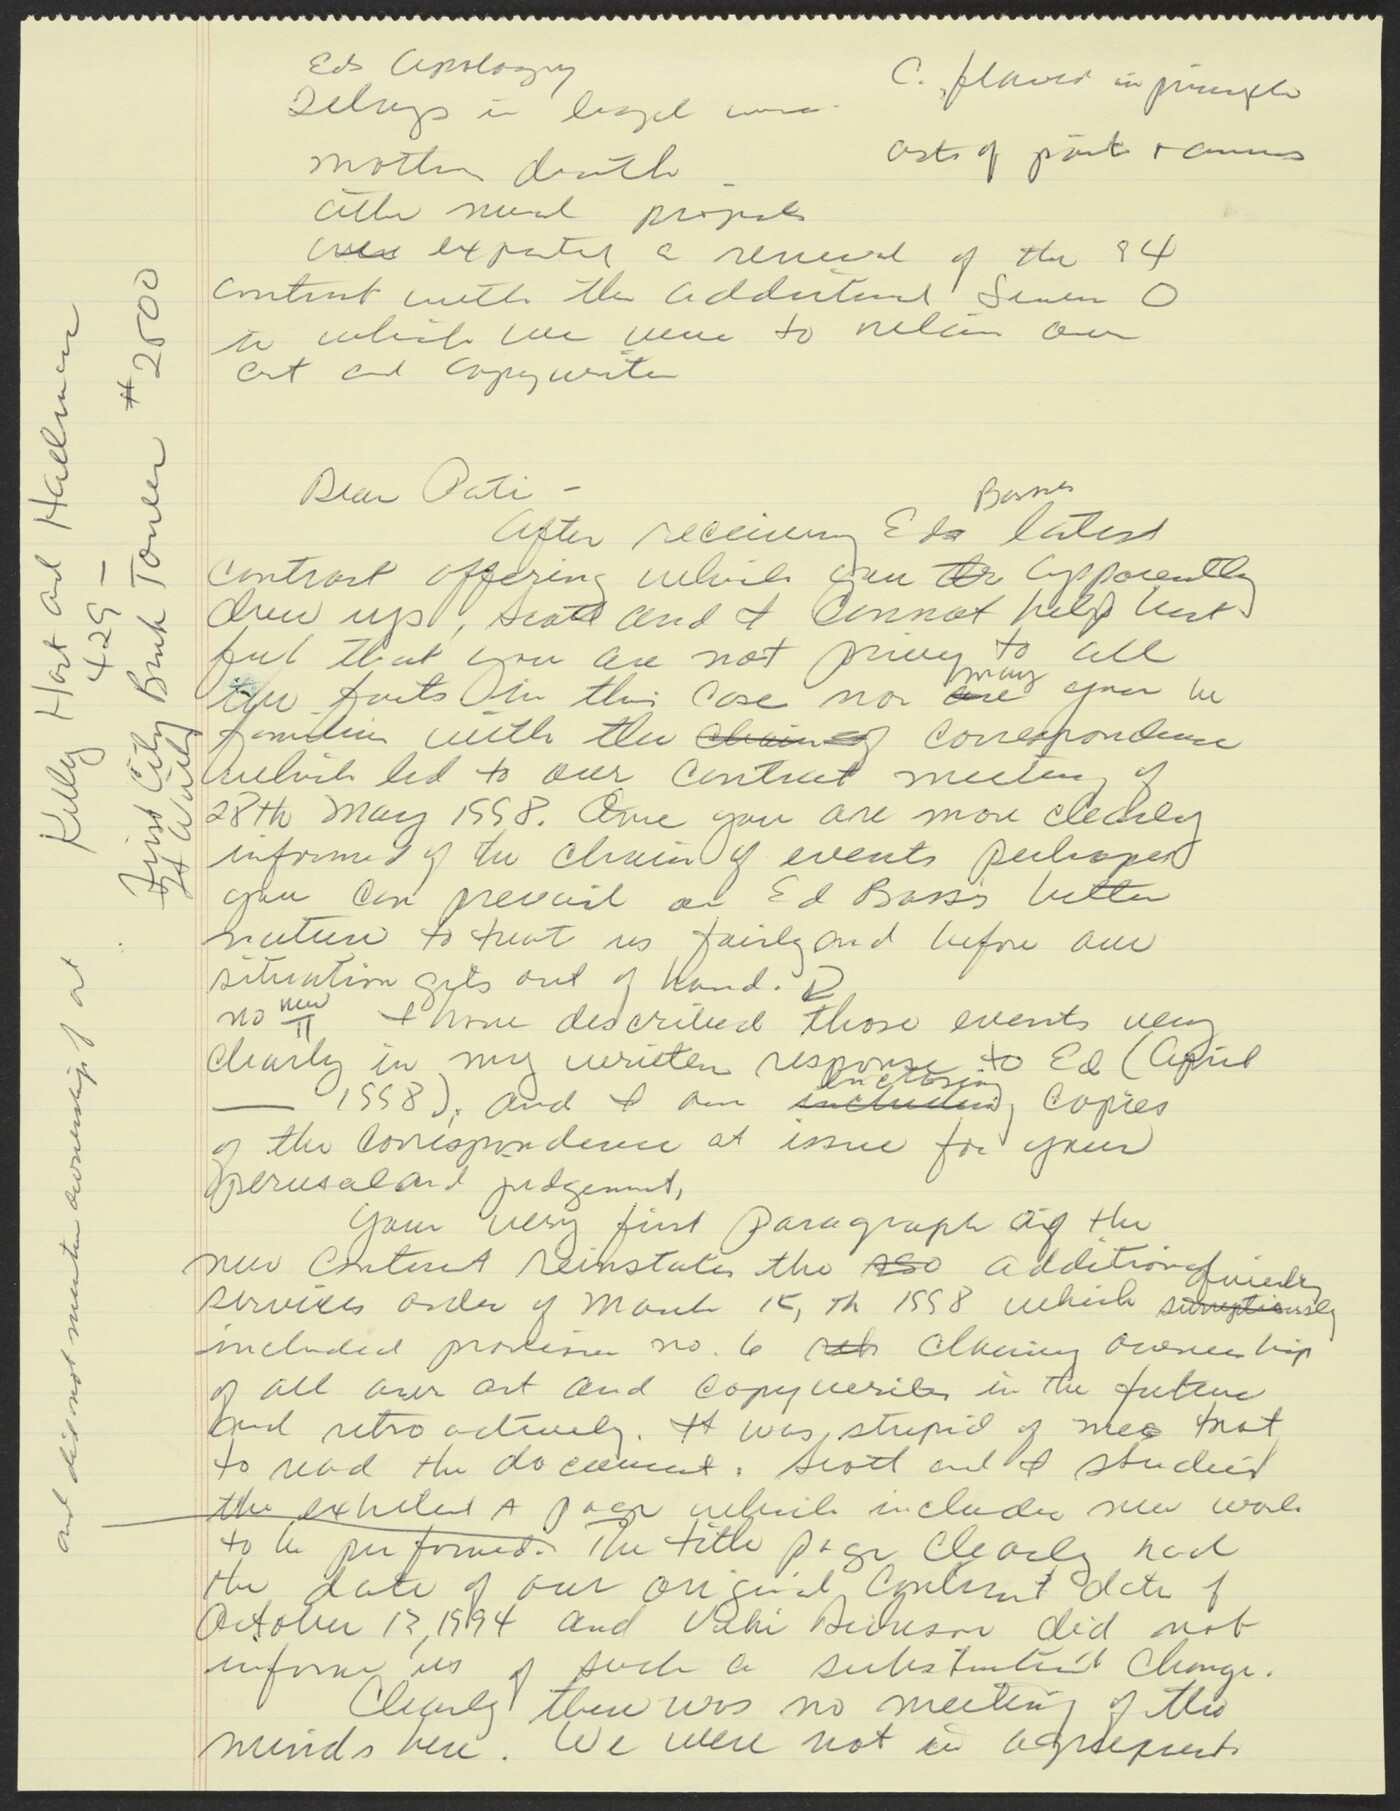 Eds apology
Delays in legal
mothers death
other mural projects
expected a renewal of the 94
contract with the additional Service O
in which we were to retain our
art and copywrite
C. flawed in principle
costs of paint + canvas
Kelly Hart and Hallman
429 —
First City Bank Tower # 2500
Ft Worth
Dear Pati -
After receiving Ed Basses latest
contract offering which you the apparently
drew up, Scott and I cannot help but
feel that you are not privey to all
the facts in this case nor are may you be
familiar with the chain of correspondence
which led to our contract meeting of
28th May 1998. Once you are more clearly
informed of the chain of events perhapes
you can prevail on Ed Bass's better
nature to treat us fairly and before our
situation gets out of hand.
no new ¶ I have described those events very
clearly in my written response to Ed (April
___ 1998), and I am including enclosing copies
of the correspondence at issue for your
perusal and judgement,
Your very first paragraph of the
new contract reinstates the additional
services order of March 15, th 1998 which surruptiously quietly
included provision no. 6 claiming ownership
of all our art and copywrites in the future
and retroactively. It was stupid of me not
to read the document. Scott and I studied
the exhibit A page which includes new work
to be performed. The title page clearly had
the date of our original contract date of
October 13, 1994 and Vicki Dickerson did not
inform us of such a substantial change.
Clearly there was no meeting of the
minds here. We were not in agreement
and did not mention ownership of art